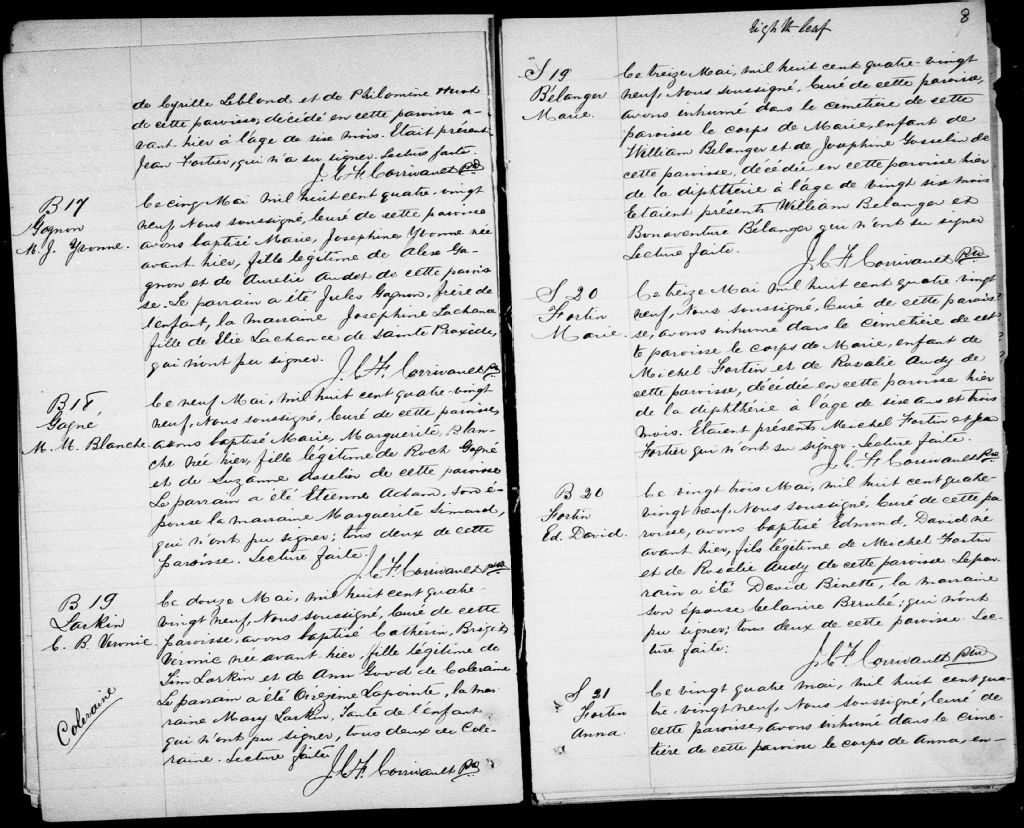 de Cyrille Leblond et de Philomine Huot
de cette paroisse, décédé en cette paroisse a-
vant hier à l'âge de six mois. Etait présent
Jean Fortier, qui n'a su signer. Lecture faite.
J. C. F. Corrivault Ptre
B 17
Gagnon
M. J. Yvonne.
Ce cinq Mai mil huit cent quatre-vingt
neuf, Nous soussigné, Curé de cette paroisse
avons baptisé Marie, Josephine Yvonne née
avant-hier, fille légitime de Alex Ga-
gnon et de Aurelie Audet de cette parois
se. Le parrain a été Jules Gagnon, frère de
l'enfant, la marraine Josephine Lachance
fille de Elie Lachance de Sainte Praxède,
qui n'ont pu signer.
J. C. F. Corrivault Ptre
B 18,
Gagné
M. M. Blanche.
Ce neuf Mai, mil huit cent quatre-vingt
neuf, Nous soussigné, Curé de cette paroisse,
avons baptisé Marie, Marguerite, Blan-
che née hier, fille légitime de Roch Gagné
et de Suzanne Asselin de cette paroisse
Le parrain a été Etienne Adam, son é-
pouse la marraine Marguerite Simard,
qui n'ont pu signer; tous deux de cette
paroisse. Lecture faite.
J. C. F. Corrivault ptre
B 19
Larkin
C. B. Veronic
Coleraine
Ce douze Mai, mil huit cent quatre-
vingt neuf, Nous soussigné, Curé de cette
paroisse, avons baptisé Cathérin, Brigit,
Veronic née avant hier, fille légitime de
Tim Larkin et de Ann Good de Coleraine
Le parrain a été Onezime Lapointe, la mar
raine Mary Larkin, Tante de l'enfant
qui n'ont pu signer, tous deux de Cole-
raine. Lecture faite
J. C. F. Corrivault Ptre
8
eighth leaf
S 19
Bélanger
Marie.
Ce treize Mai, mil huit cent quatre-vingt
neuf, Nous soussigné, Curé de cette paroisse,
avons inhumé dans le cimetière de cette
paroisse le corps de Marie, enfant de
William Belanger et de Josephine Gosselin de
cette paroisse, décédée en cette paroisse hier
de la diphthérie à l'âge de vingt six mois
Etaient présents William Belanger et
Bonaventure Bélanger qui n'ont su signer
Lecture faite.
J. C. F. Corrivault Ptre
S 20
Fortin
Marie.
Ce treize Mai mil huit cent quatre-vingt
neuf, Nous soussigné, Curé de cette parois-
se, avons inhumé dans le cimetière de cet-
te paroisse le corps de Marie, enfant de
Michel Fortin et de Rosalie Audy de
cette paroisse, décédée en cette paroisse hier
de la diphthérie à l'âge de six ans et trois
mois. Etaient présents Michel Fortin et Jean
Fortier qui n'ont su signer. Lecture faite.
J. C. F. Corrivault Ptre
B 20
Fortin
Ed. David.
Ce vingt trois Mai, mil huit cent quatre-
vingt neuf, Nous soussigné, Curé de cette pa
roisse, avons baptisé Edmond, David né
avant hier, fils légitime de Michel Fortin
et de Rosalie Audy de cette paroisse Le par-
rain a été David Binette, la marraine
son épouse Belanire Berubé; qui n'ont
pu signer; tous deux de cette paroisse. Lec-
ture faite.
J. C. F. Corrivault ptre
S 21
Fortin
Anna.
Ce vingt quatre mai, mil huit cent qua-
tre-vingt neuf, Nous soussigné, Curé de
cette paroisse, avons inhumé dans le cime-
tière de cette paroisse le corps de Anna, en-